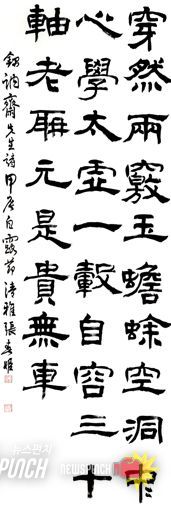 穿然兩竅玉蟾蜍空洞中
心學太虛一轂自容三十
軸老聃元是貴無車
錄訥齋先生詩甲辰白露節清雅張春姬
뉴스펀치
PUNCH
NEWSPUNCH